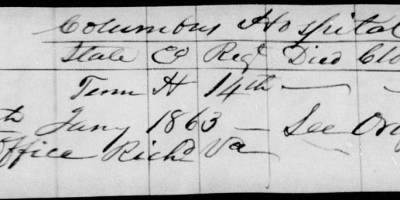 Columbus Hospital
State Co Regt Died Clo
Tenn H 14th — —
th Jany 1863 — See Ori
Office Richd Va